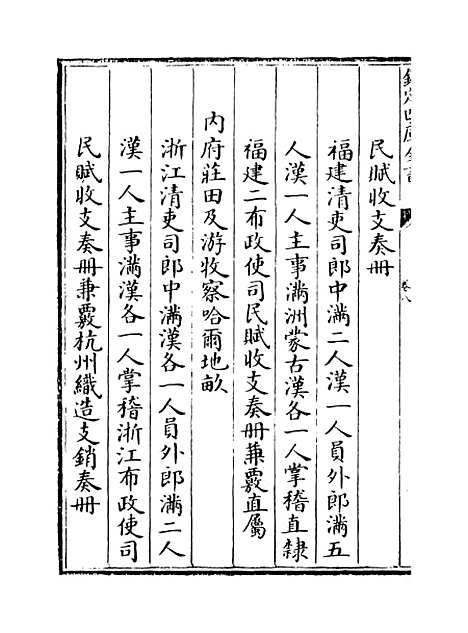 欽定四庫全書
卷八
民賦收支奏册
福建清吏司郎中滿二人漢一人員外郎滿五
人漢一人主事滿洲蒙古漢各一人掌稽直隸
福建二布政使司民賦收支奏册兼覈直屬
内府莊田及游牧察哈爾地畝
浙江清吏司郎中滿漢各一人員外郎滿二人
漢一人主事滿漢各一人掌稽浙江布政使司
民賦收支奏册兼覈杭州織造支銷奏册